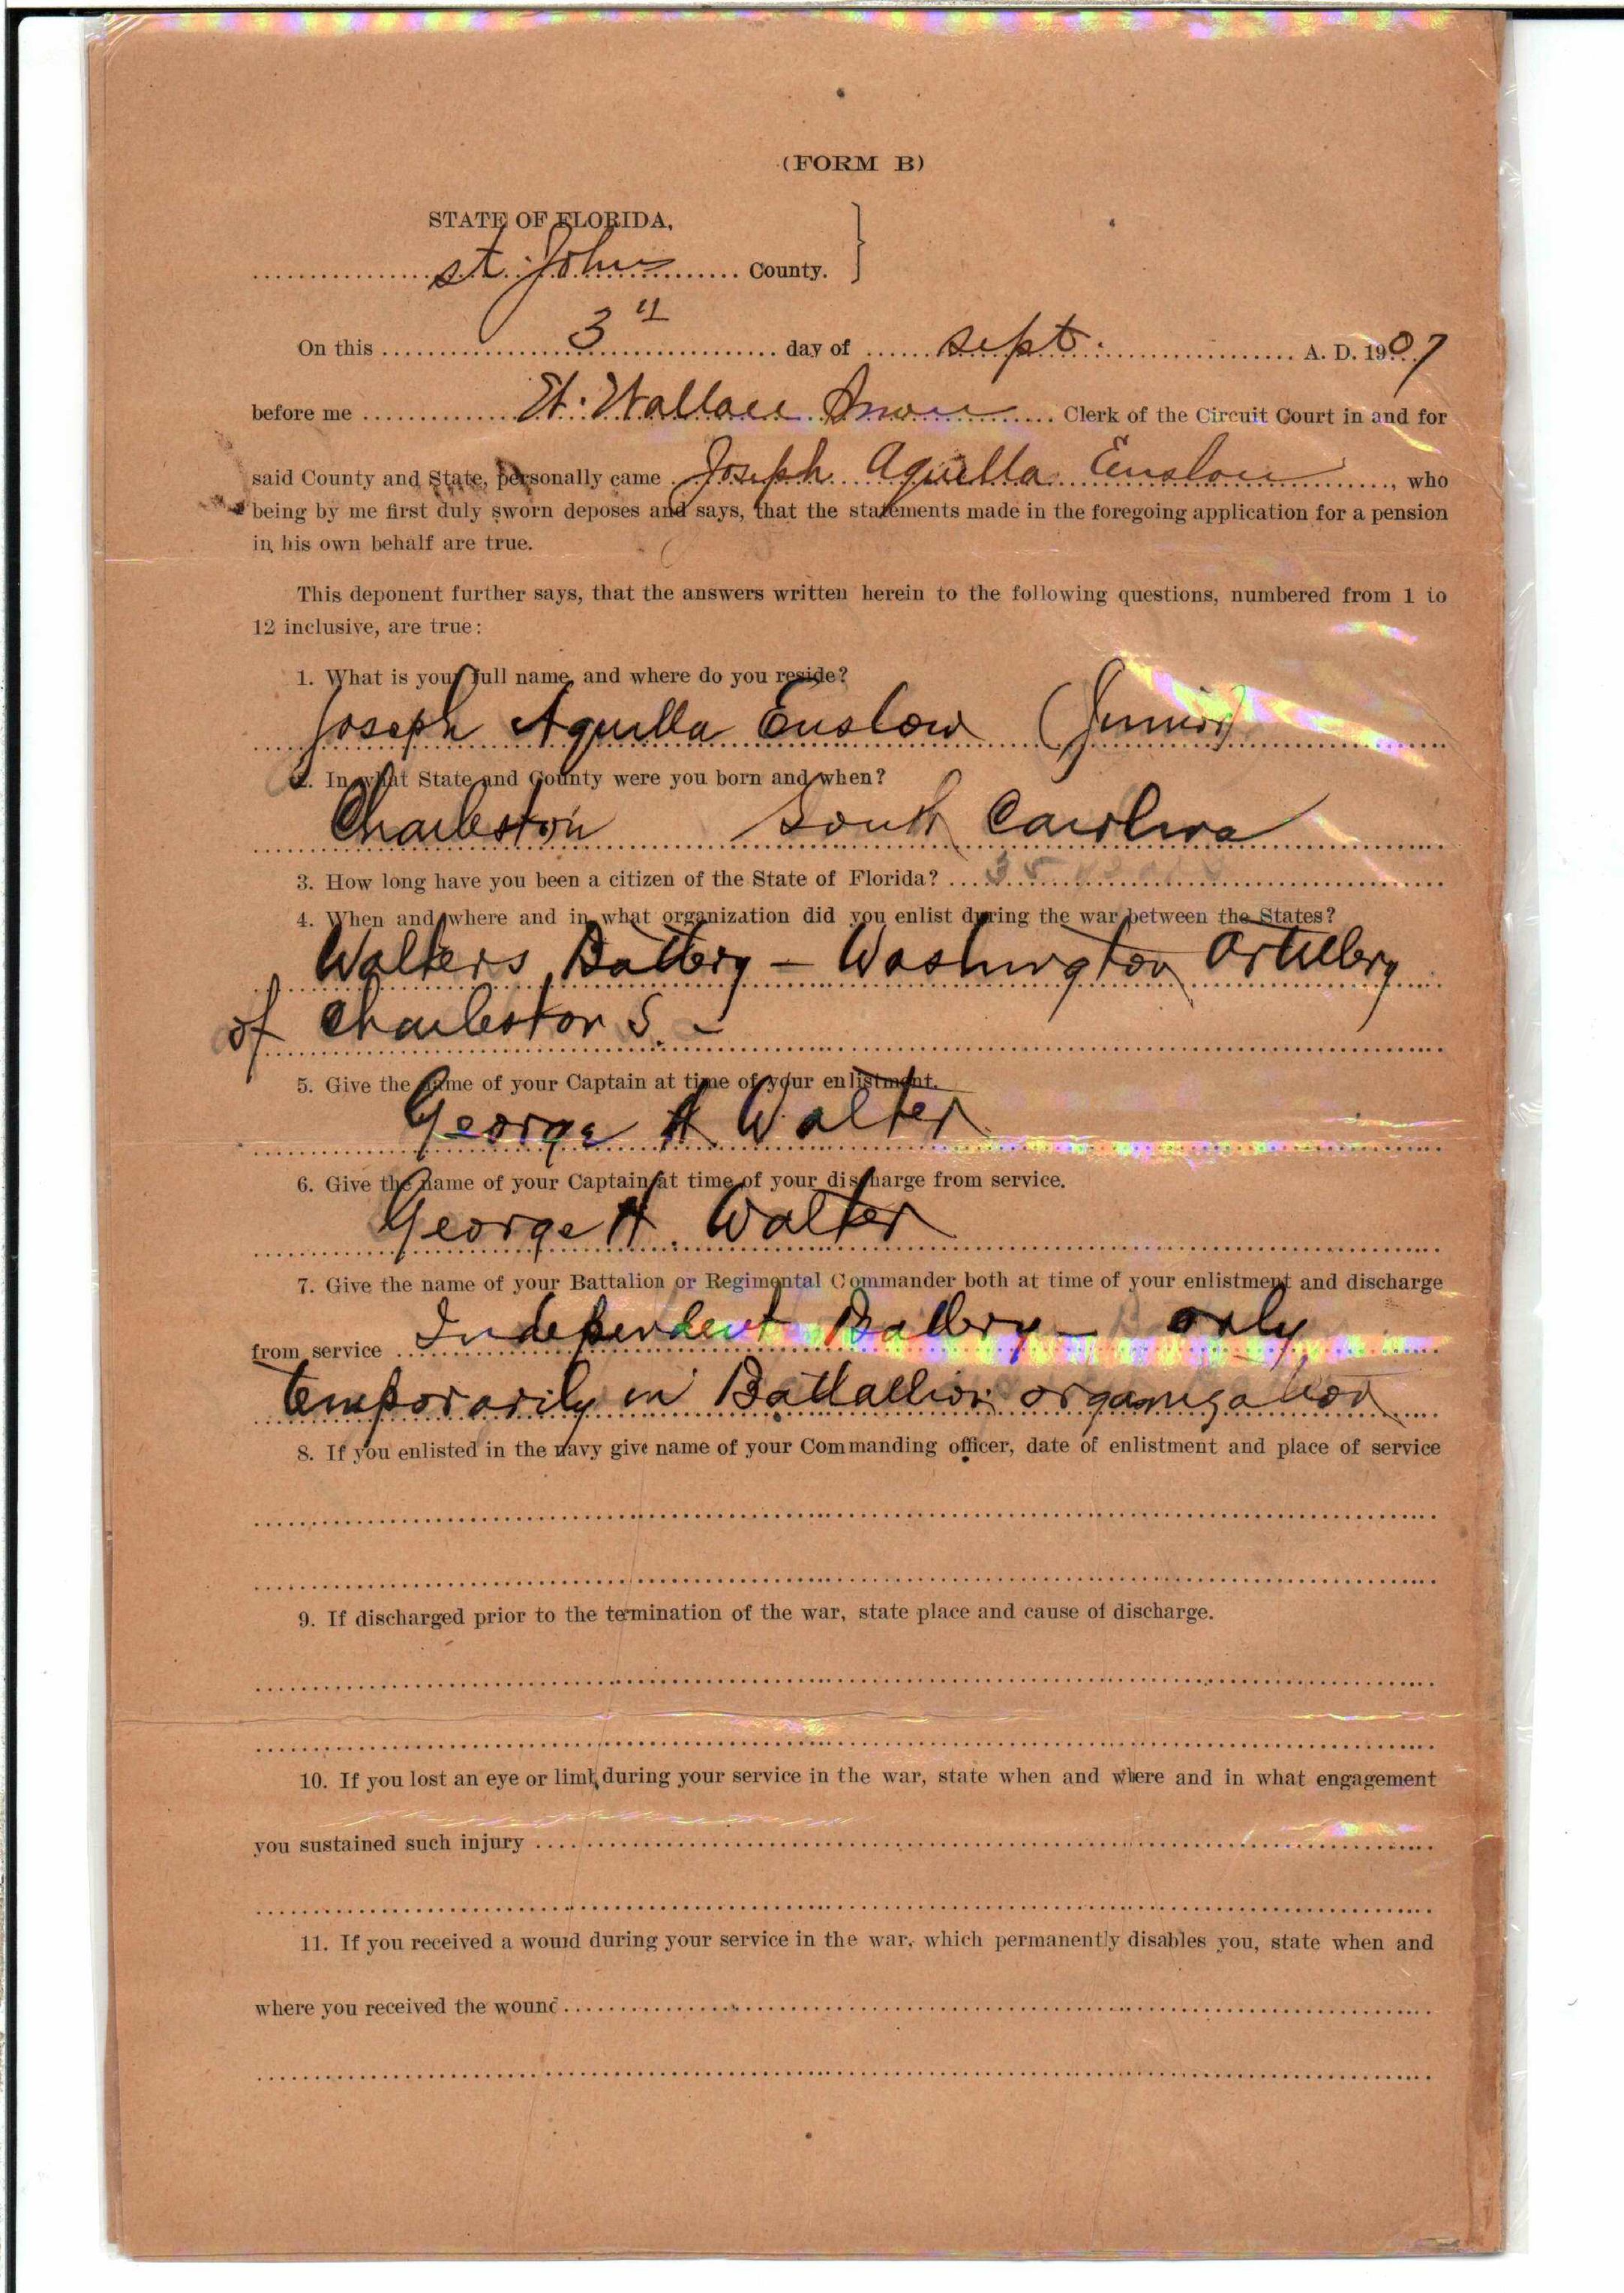 (FORM B)
STATE OF FLORIDA,
St. Johns County.
On this 3" day of Sept. A. D. 1907
before me Wallace Clerk of the Circuit Court in and for
said County and State, personally came Joseph Aquilla Enslow, who
being by me first duly sworn deposes and says, that the statements made in the foregoing application for a pension
in his own behalf are true.
This deponent further says, that the answers written herein to the following questions, numbered from 1 to
12 inclusive, are true:
1. What is your full name, and where do you reside?
Joseph Aquilla Enslow (Junior)
2. In what State and County were you born and when?
Charleston South Carolina
3. How long have you been a citizen of the State of Florida?
4. When and where and in what organization did you enlist during the war between the States?
Walters Battery - Washington Artillery
of Charleston S. -
5. Give the name of your Captain at time of your enlistment.
George H Walter
6. Give the name of your Captain at time of your discharge from service.
George H. Walter
7. Give the name of your Battalion or Regimental Commander both at time of your enlistment and discharge
from service Independent Battery - only
temporarily in Battallion organization
8. If you enlisted in the navy give name of your Commanding officer, date of enlistment and place of service
9. If discharged prior to the termination of the war, state place and cause of discharge.
10. If you lost an eye or limb, during your service in the war, state when and where and in what engagement
you sustained such injury
11. If you received a wound during your service in the war, which permanently disables you, state when and
where you received the wound